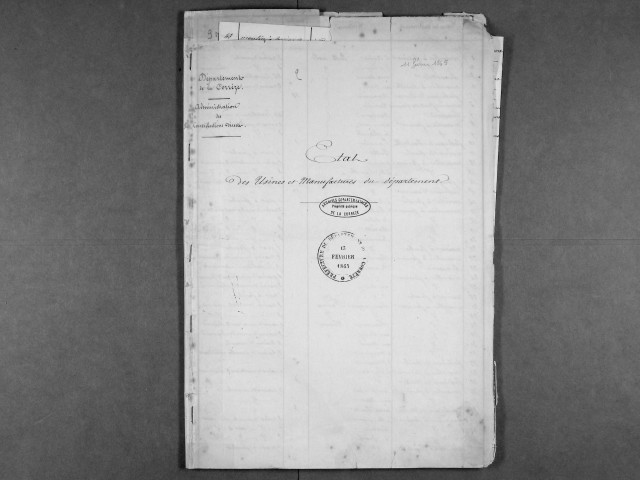 2
Département
de la Corrèze.
Administration
des
Contributions directes.
Etat
Des Usines et Manufactures du département
ARCHIVES DÉPARTEMENTALES
Propriété publique
DE LA CORRÈZE
FÉVRIER